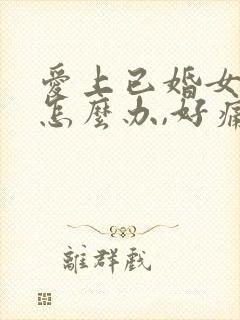 愛上已婚女
怎麼办,好痛
離群戲